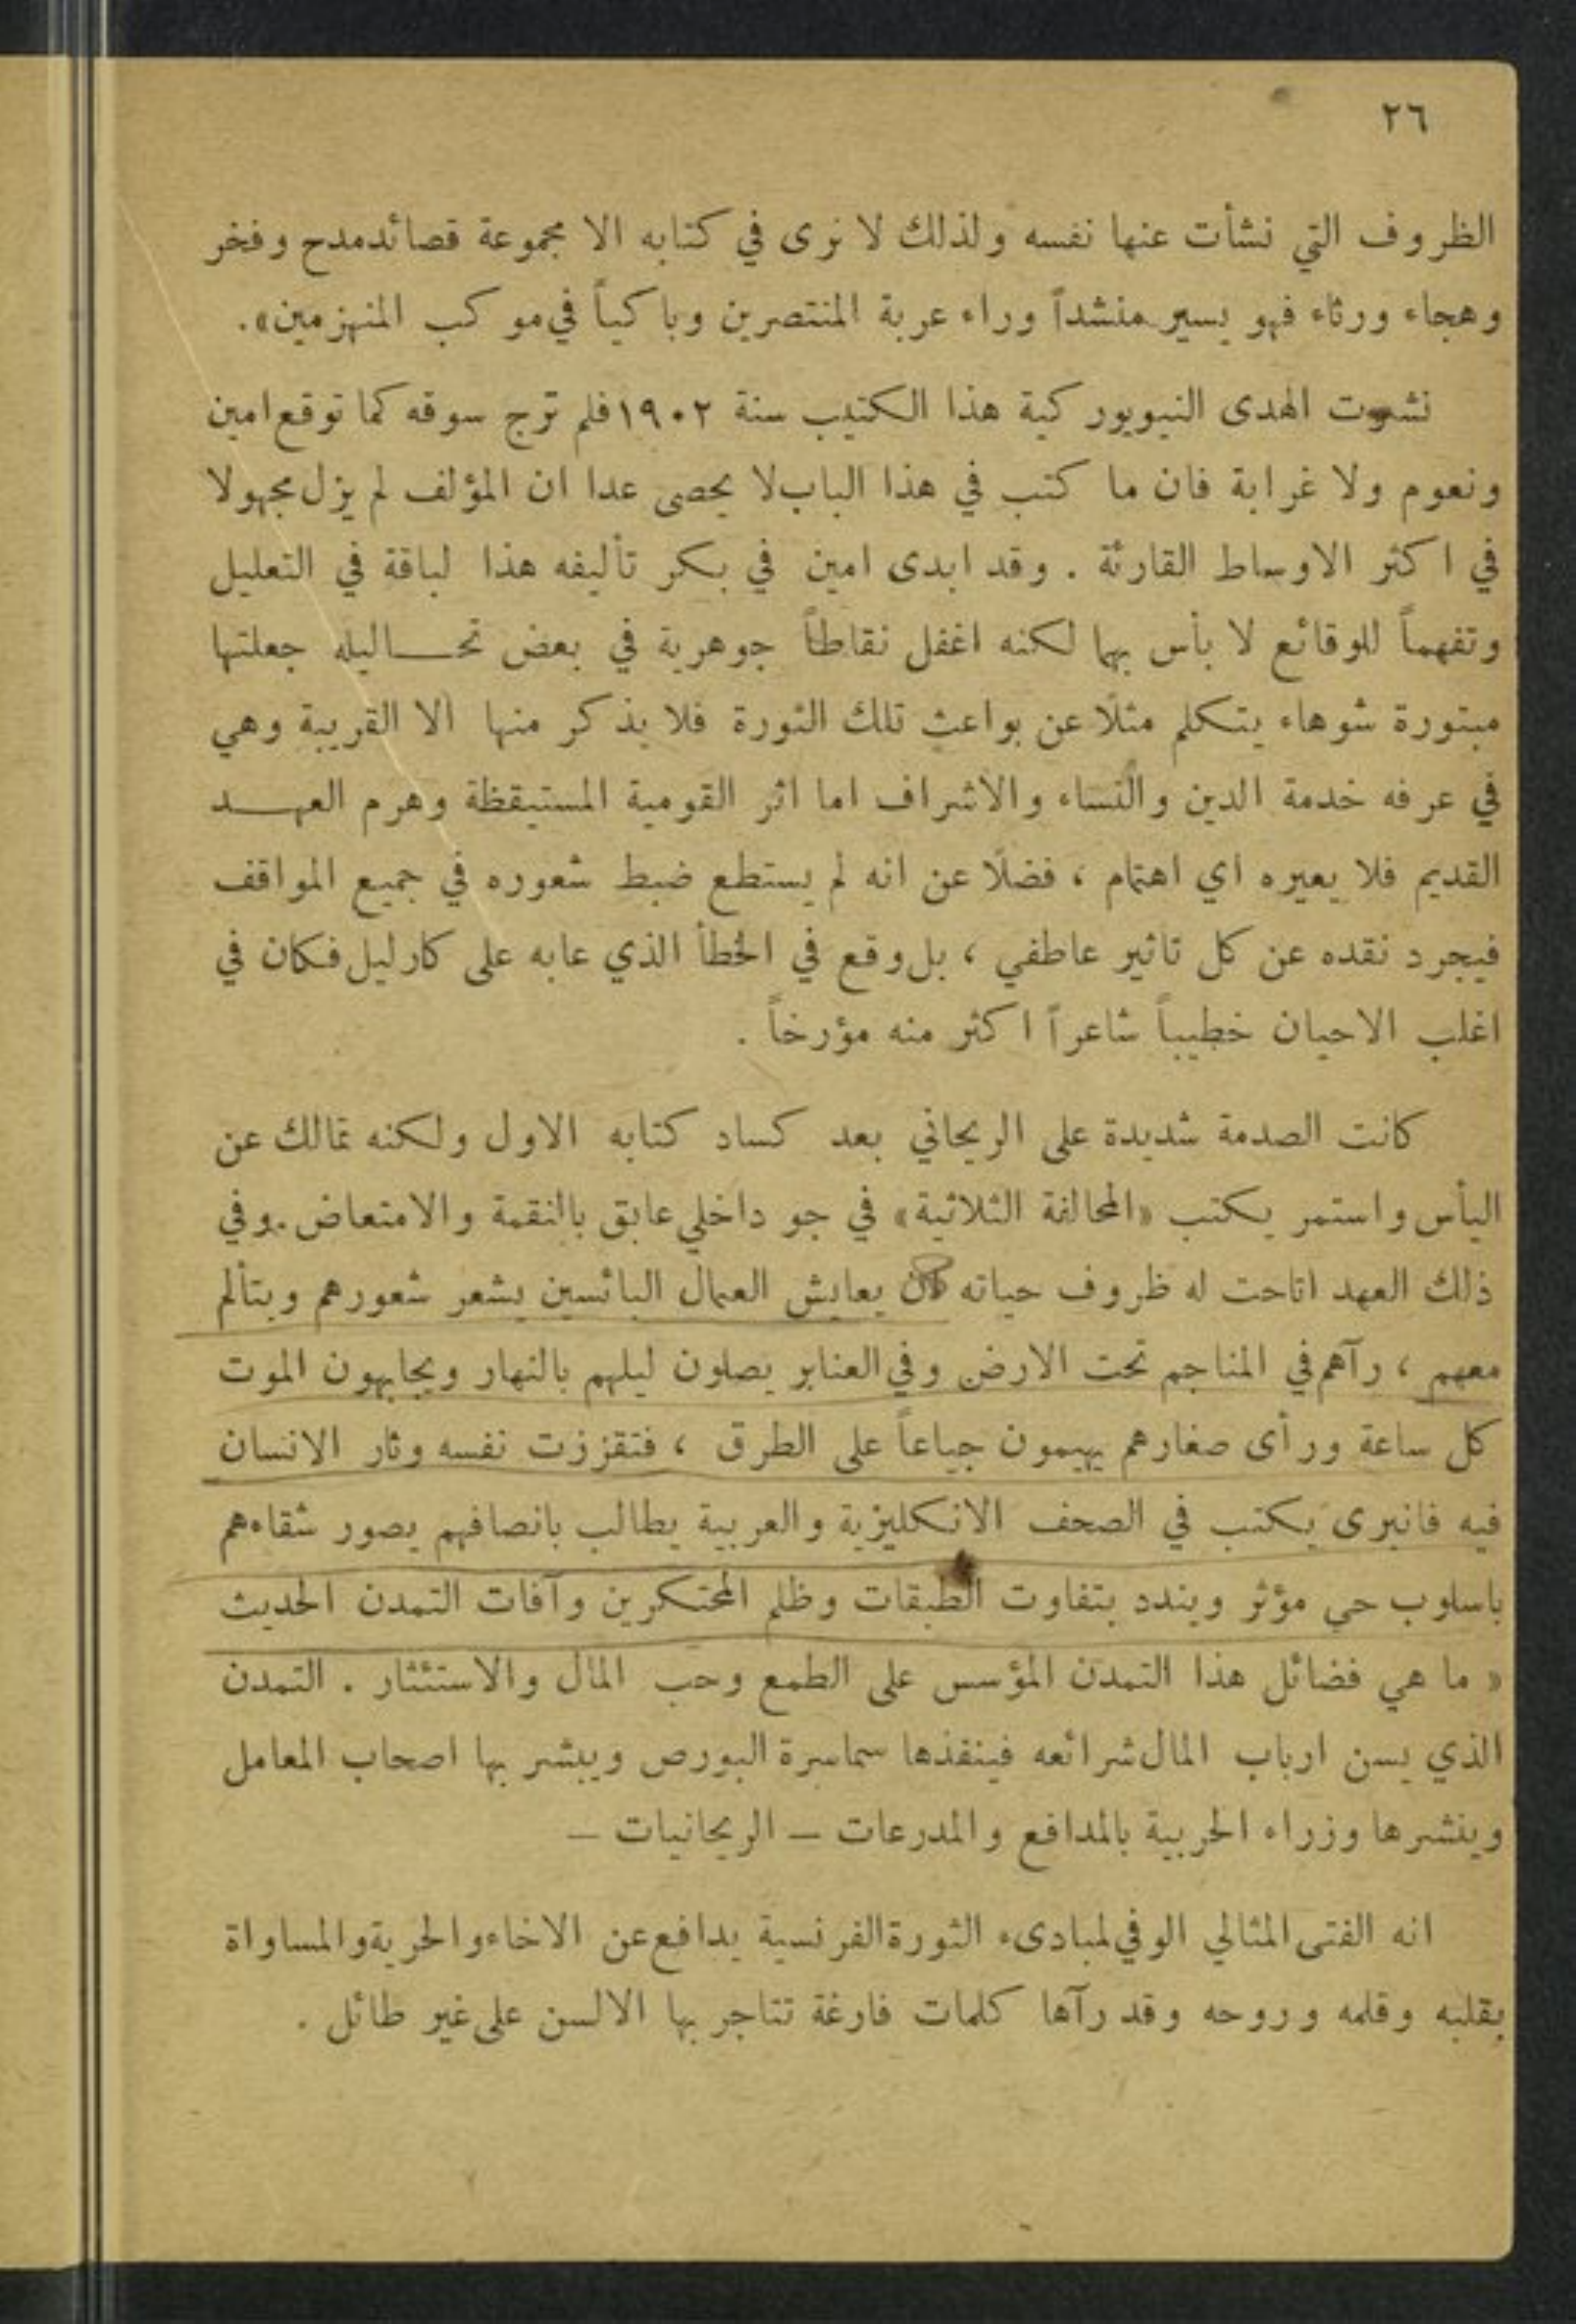 ٢٦
الظروف التي نشأت عنها نفسه ولذلك لا نرى في كتابه الا مجموعة قصائد مدح وفخر
وهجاء ورثاء فهو يسير منشداً وراء عربة المنتصرين وباكياً في موكب المنهزمين».
نشرت الهدى النيويوركية هذا الكتيب سنة ١٩٠٢ فلم ترج سوقه كما توقع امين
ونعوم ولا غرابة فان ما كتب في هذا الباب لا يحصى عدا ان المؤلف لم يزل مجهولا
في اكثر الاوساط القارئة . وقد ابدى امين في بكر تأليفه هذا لباقة في التعليل
وتفهماً للوقائع لا بأس بهما لكنه اغفل نقاطاً جوهرية في بعض تحـــاليله جعلتها
مبتورة شوهاء يتكلم مثلًا عن بواعث تلك الثورة فلا يذكر منها الا القريبة وهي
في عرفه خدمة الدين والنساء والاشراف اما اثر القومية المستيقظة وهرم العهـــد
القديم فلا يعيره اي اهتمام ، فضلًا عن انه لم يستطع ضبط شعوره في جميع المواقف
فيجرد نقده عن كل تاثير عاطفي ، بل وقع في الخطأ الذي عابه على كارليل فكان في
اغلب الاحيان خطيباً شاعراً اكثر منه مؤرخاً .
كانت الصدمة شديدة على الريحاني بعد كساد كتابه الاول ولكنه تمالك عن
اليأس واستمر يكتب «المحالفة الثلاثية» في جو داخلي عابق بالنقمة والامتعاض . وفي
ذلك العهد اتاحت له ظروف حياته ان يعايش العمال البائسين يشعر شعورهم ويتألم
معهم ، رآهم في المناجم تحت الارض وفي العنابر يصلون ليلهم بالنهار ويجابهون الموت
كل ساعة ورأى صغارهم يهيمون جياعاً على الطرق ، فتقززت نفسه وثار الانسان
فيه فانبرى يكتب في الصحف الانكليزية والعربية يطالب بانصافهم يصور شقاءهم
باسلوب حي مؤثر ويندد بتفاوت الطبقات وظلم المحتكرين وآفات التمدن الحديث
« ما هي فضائل هذا التمدن المؤسس على الطمع وحب المال والاستئثار . التمدن
الذي يسن ارباب المال شرائعه فينفذها سماسرة البورص ويبشر بها اصحاب المعامل
وينشرها وزراء الحربية بالمدافع والمدرعات – الريحانيات –
انه الفتى المثالي الوفي لمبادىء الثورة الفرنسية يدافع عن الاخاء والحرية والمساواة
بقلبه وقلمه وروحه وقد رآها كلمات فارغة تتاجر بها الالسن على غير طائل .